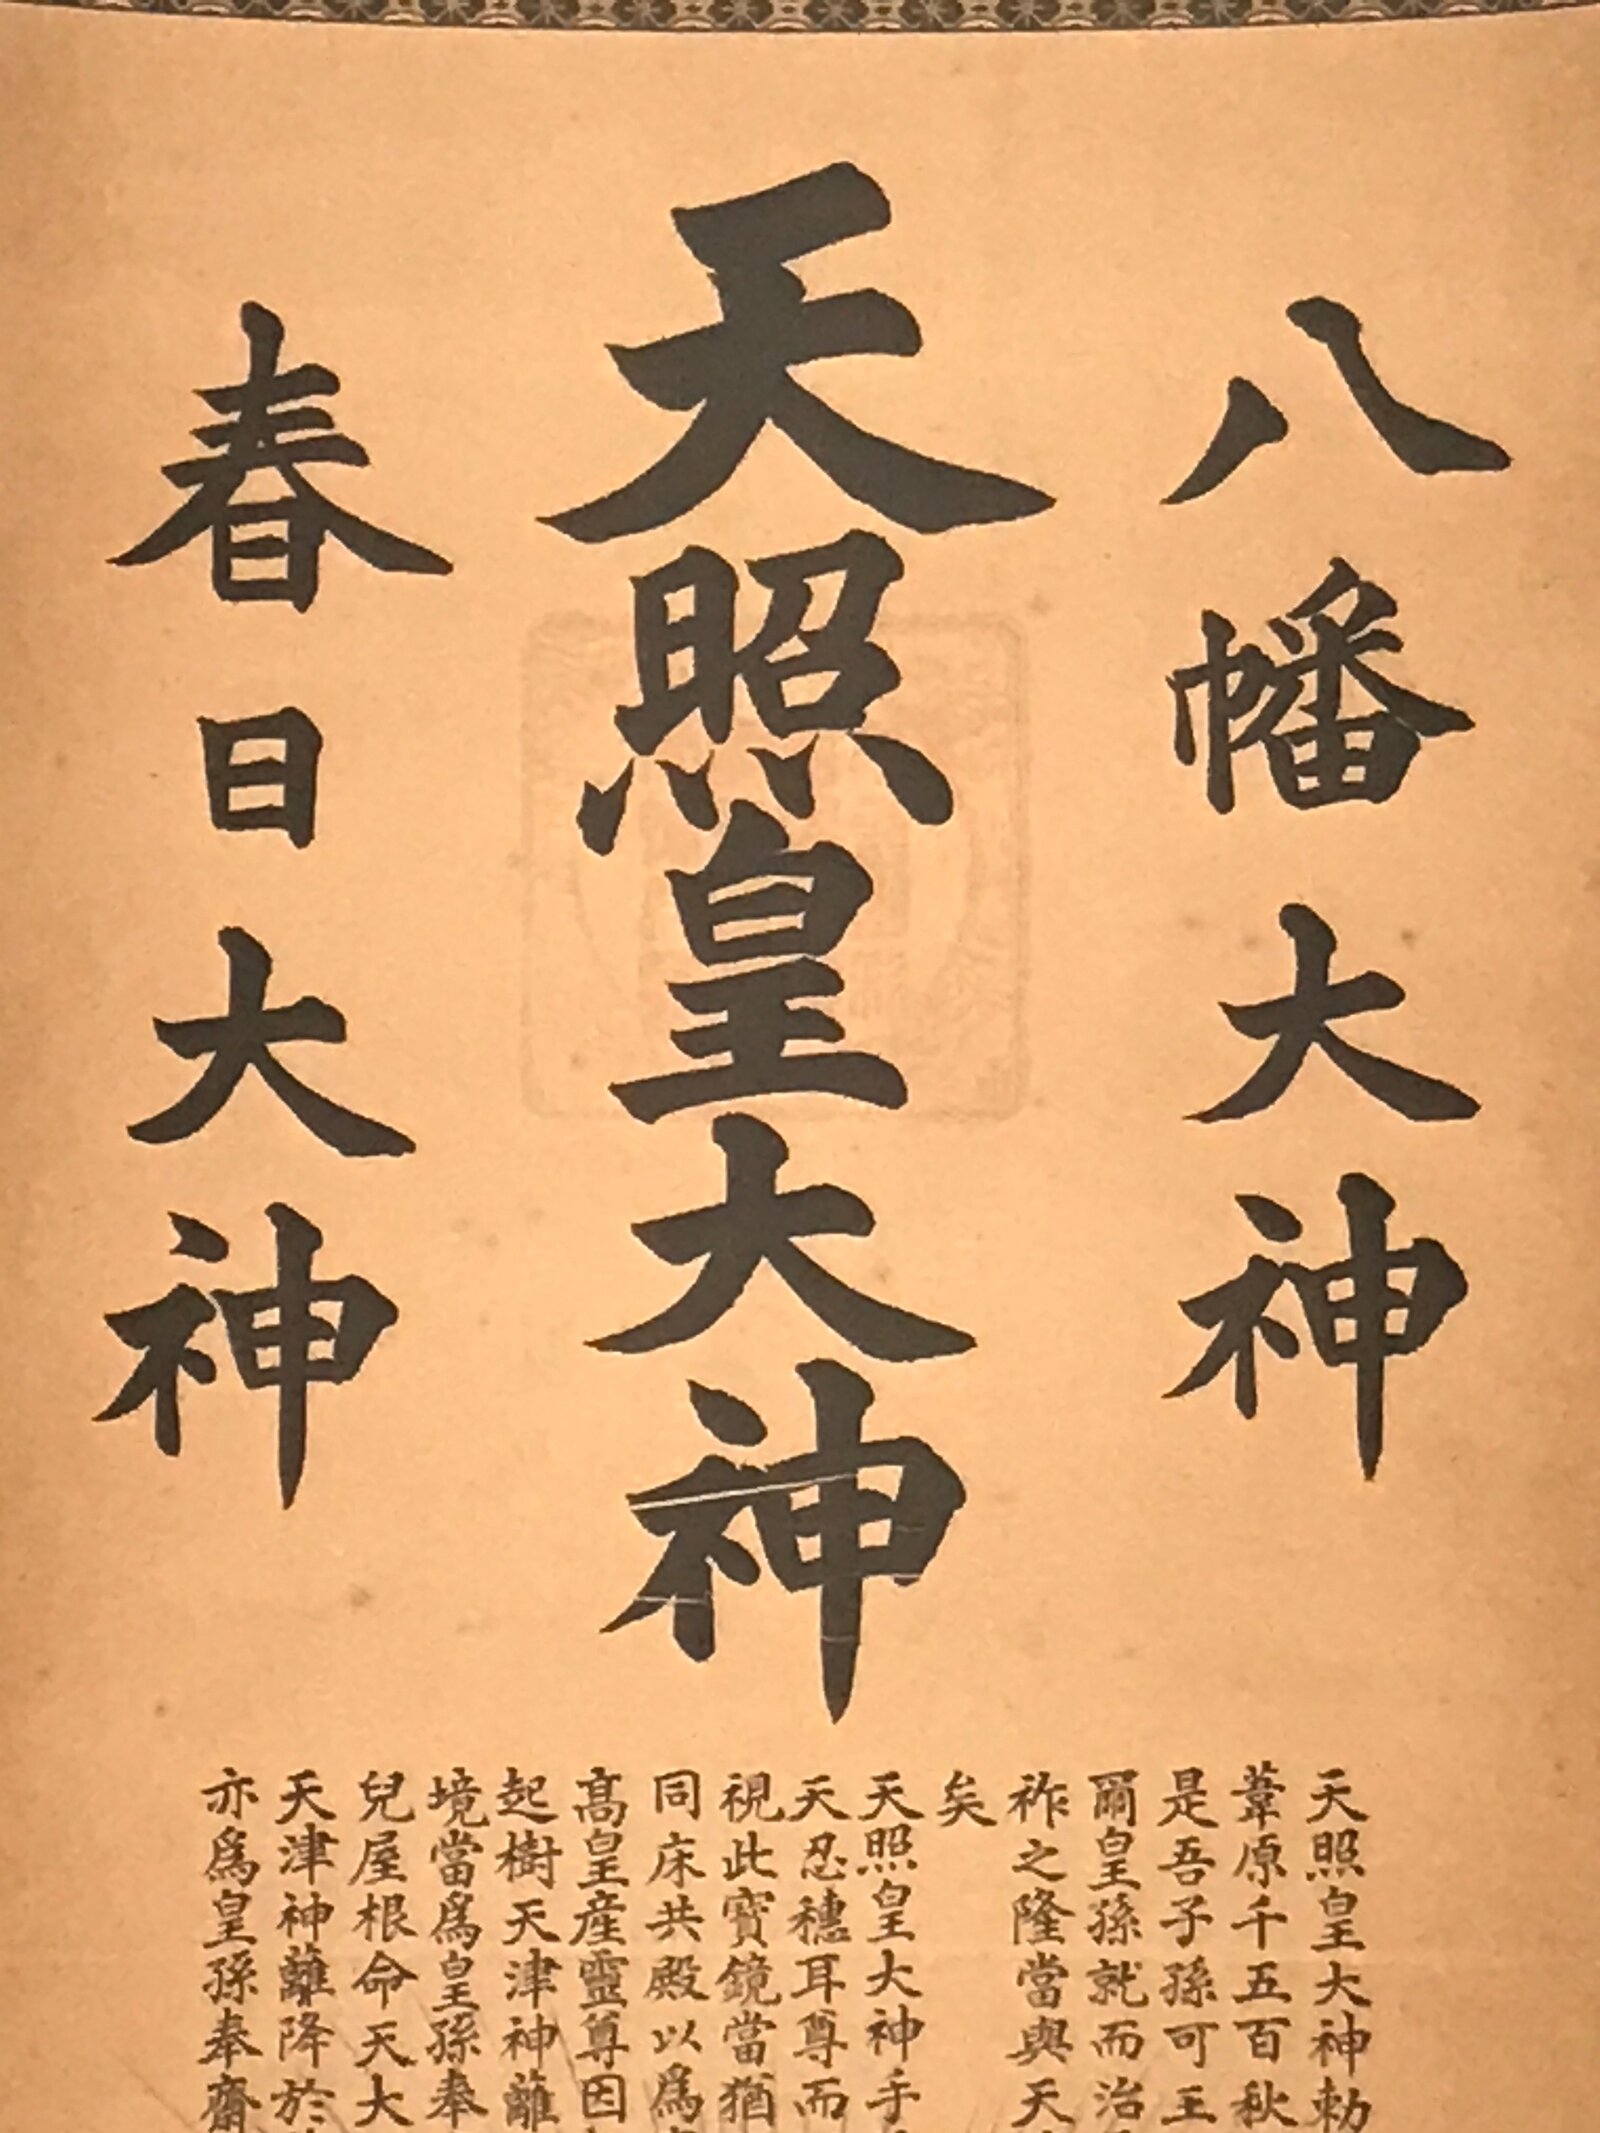 八幡大神
天照皇大神
春日大神
天照皇大神勅
葦原千五百秋
是吾子孫可王
爾皇孫就而治
祚之隆當與天
矣
天照皇大神手
天忍穗耳尊而
視此寶鏡當猶
同床共殿以爲
高皇産靈尊因
起樹天津神籬
境當爲皇孫奉
兒屋根命天大
天津神籬降於
亦爲皇孫奉齋